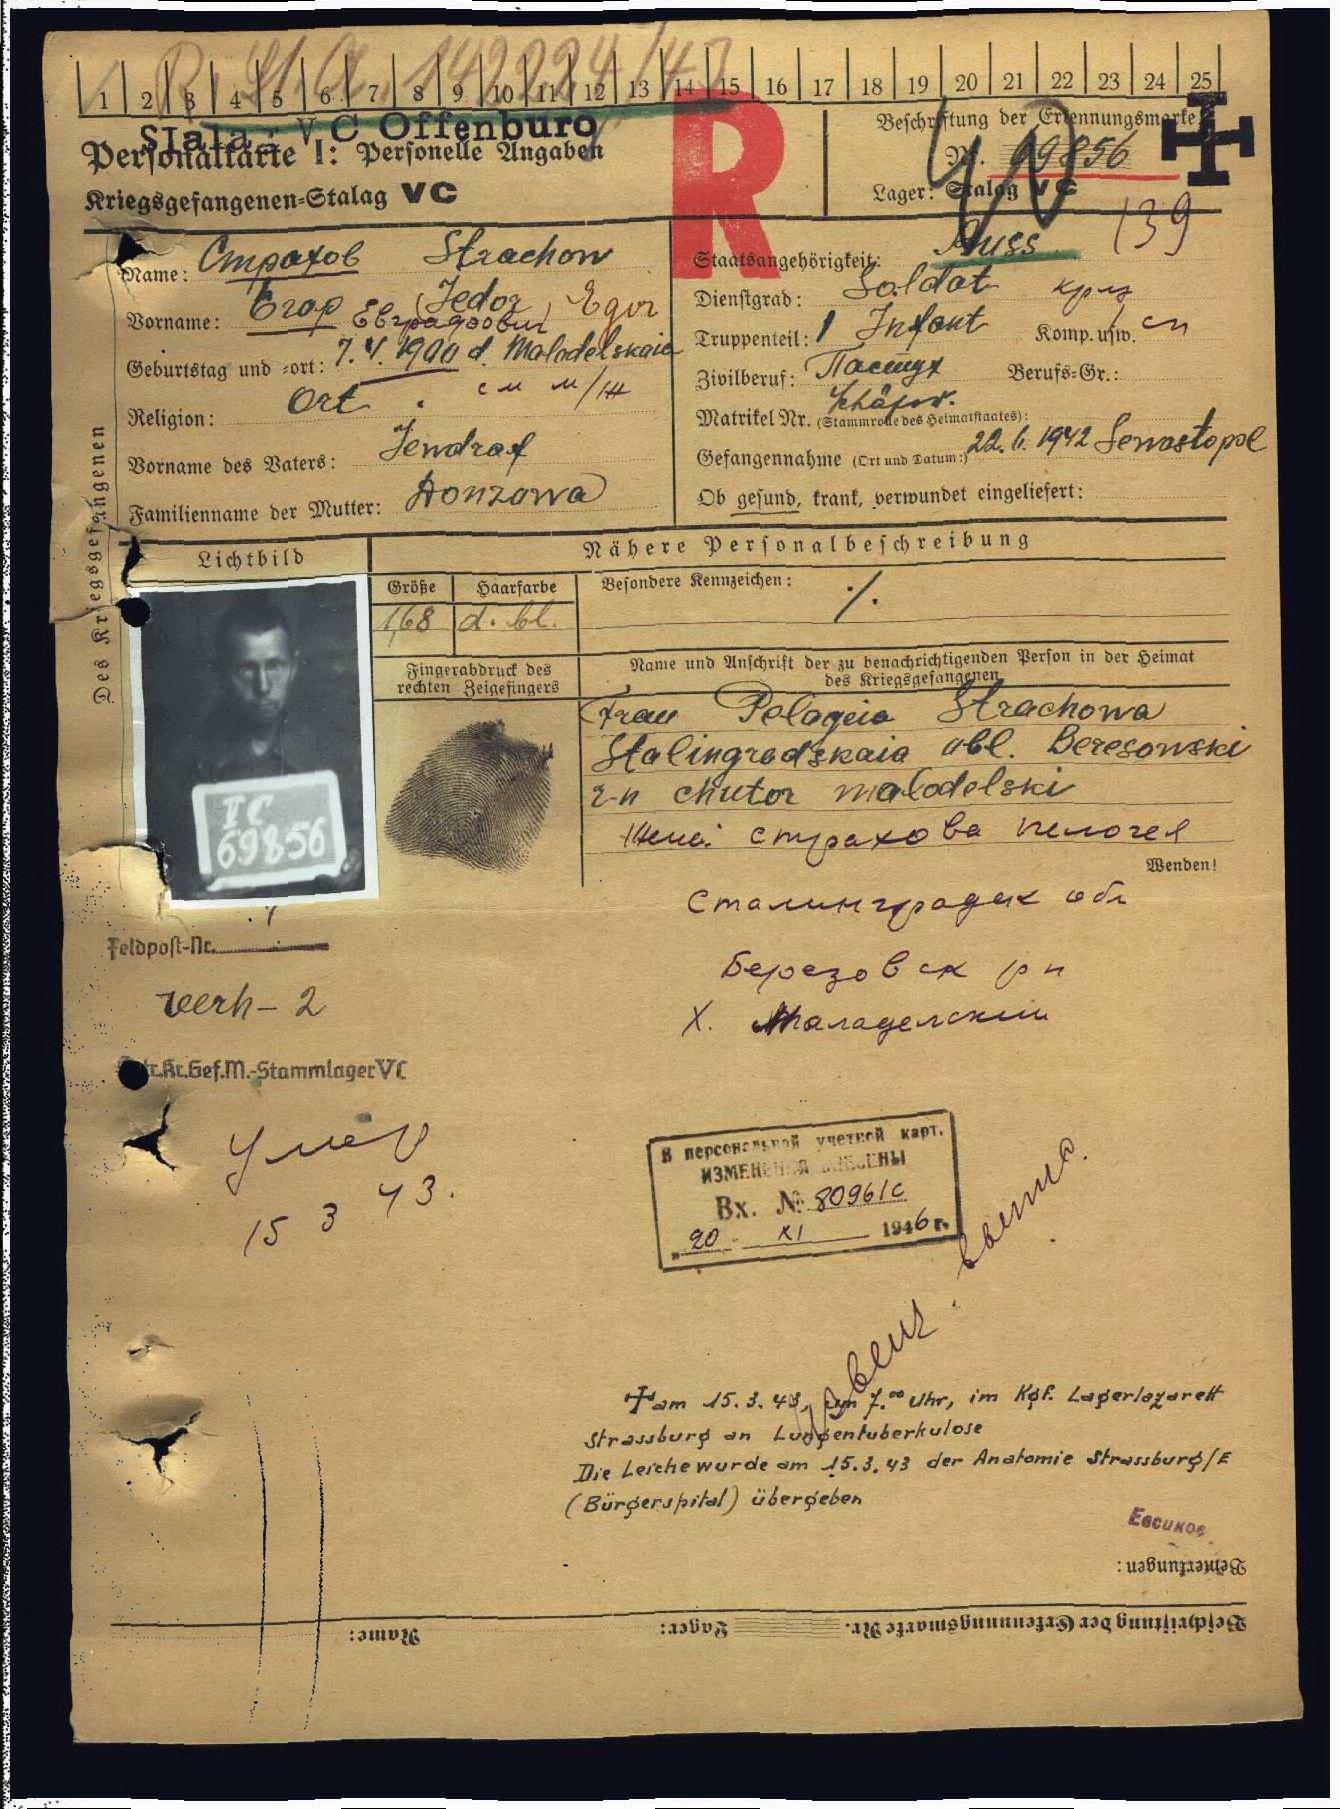 R. St. A. 142224/43
1 2 3 4 5 6 7 8 9 10 11 12 13 14 15 16 17 18 19 20 21 22 23 24 25
Stalag VC Offenburg
Personalkarte I: Personelle Angaben
Kriegsgefangenen-Stalag VC
R
Beschriftung der Erkennungsmarke
Nr. 69856
Lager: Stalag VC
139
Des Kriegsgefangenen
Name: Страхов Strachow
Vorname: Егор (Jedor) Egor
Евградович
Geburtstag und -ort: 7. 4. 1900 d. Malodelskaia
Religion: Ort. см м/ж
Vorname des Vaters: Jendraf
Familienname der Mutter: Donzowa
Staatsangehörigkeit: Russ
Dienstgrad: Soldat кр-ц
Truppenteil: 1 Infant Komp. usw. сп
Zivilberuf: Пастух Berufs-Gr.:
Schäfer.
Matrikel Nr. (Stammrolle des Heimatstaates):
Gefangennahme (Ort und Datum:) 22. 6. 1942 Sewastopol
Ob gesund, krank, verwundet eingeliefert:
Lichtbild
Nähere Personalbeschreibung
Größe Haarfarbe Besondere Kennzeichen: ./.
1,68 d. bl.
Fingerabdruck des
rechten Zeigefingers
Name und Anschrift der zu benachrichtigenden Person in der Heimat
des Kriegsgefangenen
Frau Pelageia Strachowa
Stalingradskaia obl. Beresowski
r-n chutor malodelski
VC
69856
Жена: Страхова пелогея
Wenden!
Сталинградск обл
Березовск рн
х. Маладелский
Feldpost-Nr.
verh - 2
Kr.Gef.M.-Stammlager VC
Умер
15 3 43.
В персональной учетной карт.
ИЗМЕНЕНИЯ ВНЕСЕНЫ
Вх. № 80961с
"20" XI 1946 г.
† am 15.3.43, um 7.00 Uhr, im Kgf. Lagerlazarett
Strassburg an Lungentuberkulose
Die Leiche wurde am 15.3.43 der Anatomie Strassburg/E
(Bürgerspital) übergeben
Евсиков
Bemerkungen:
Beschriftung der Erkennungsmarke Nr. Lager: Name: